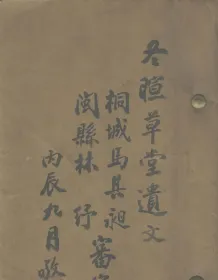 冬暄草堂遺文
桐城馬其昶
閩縣林紓審定
丙辰九月敬